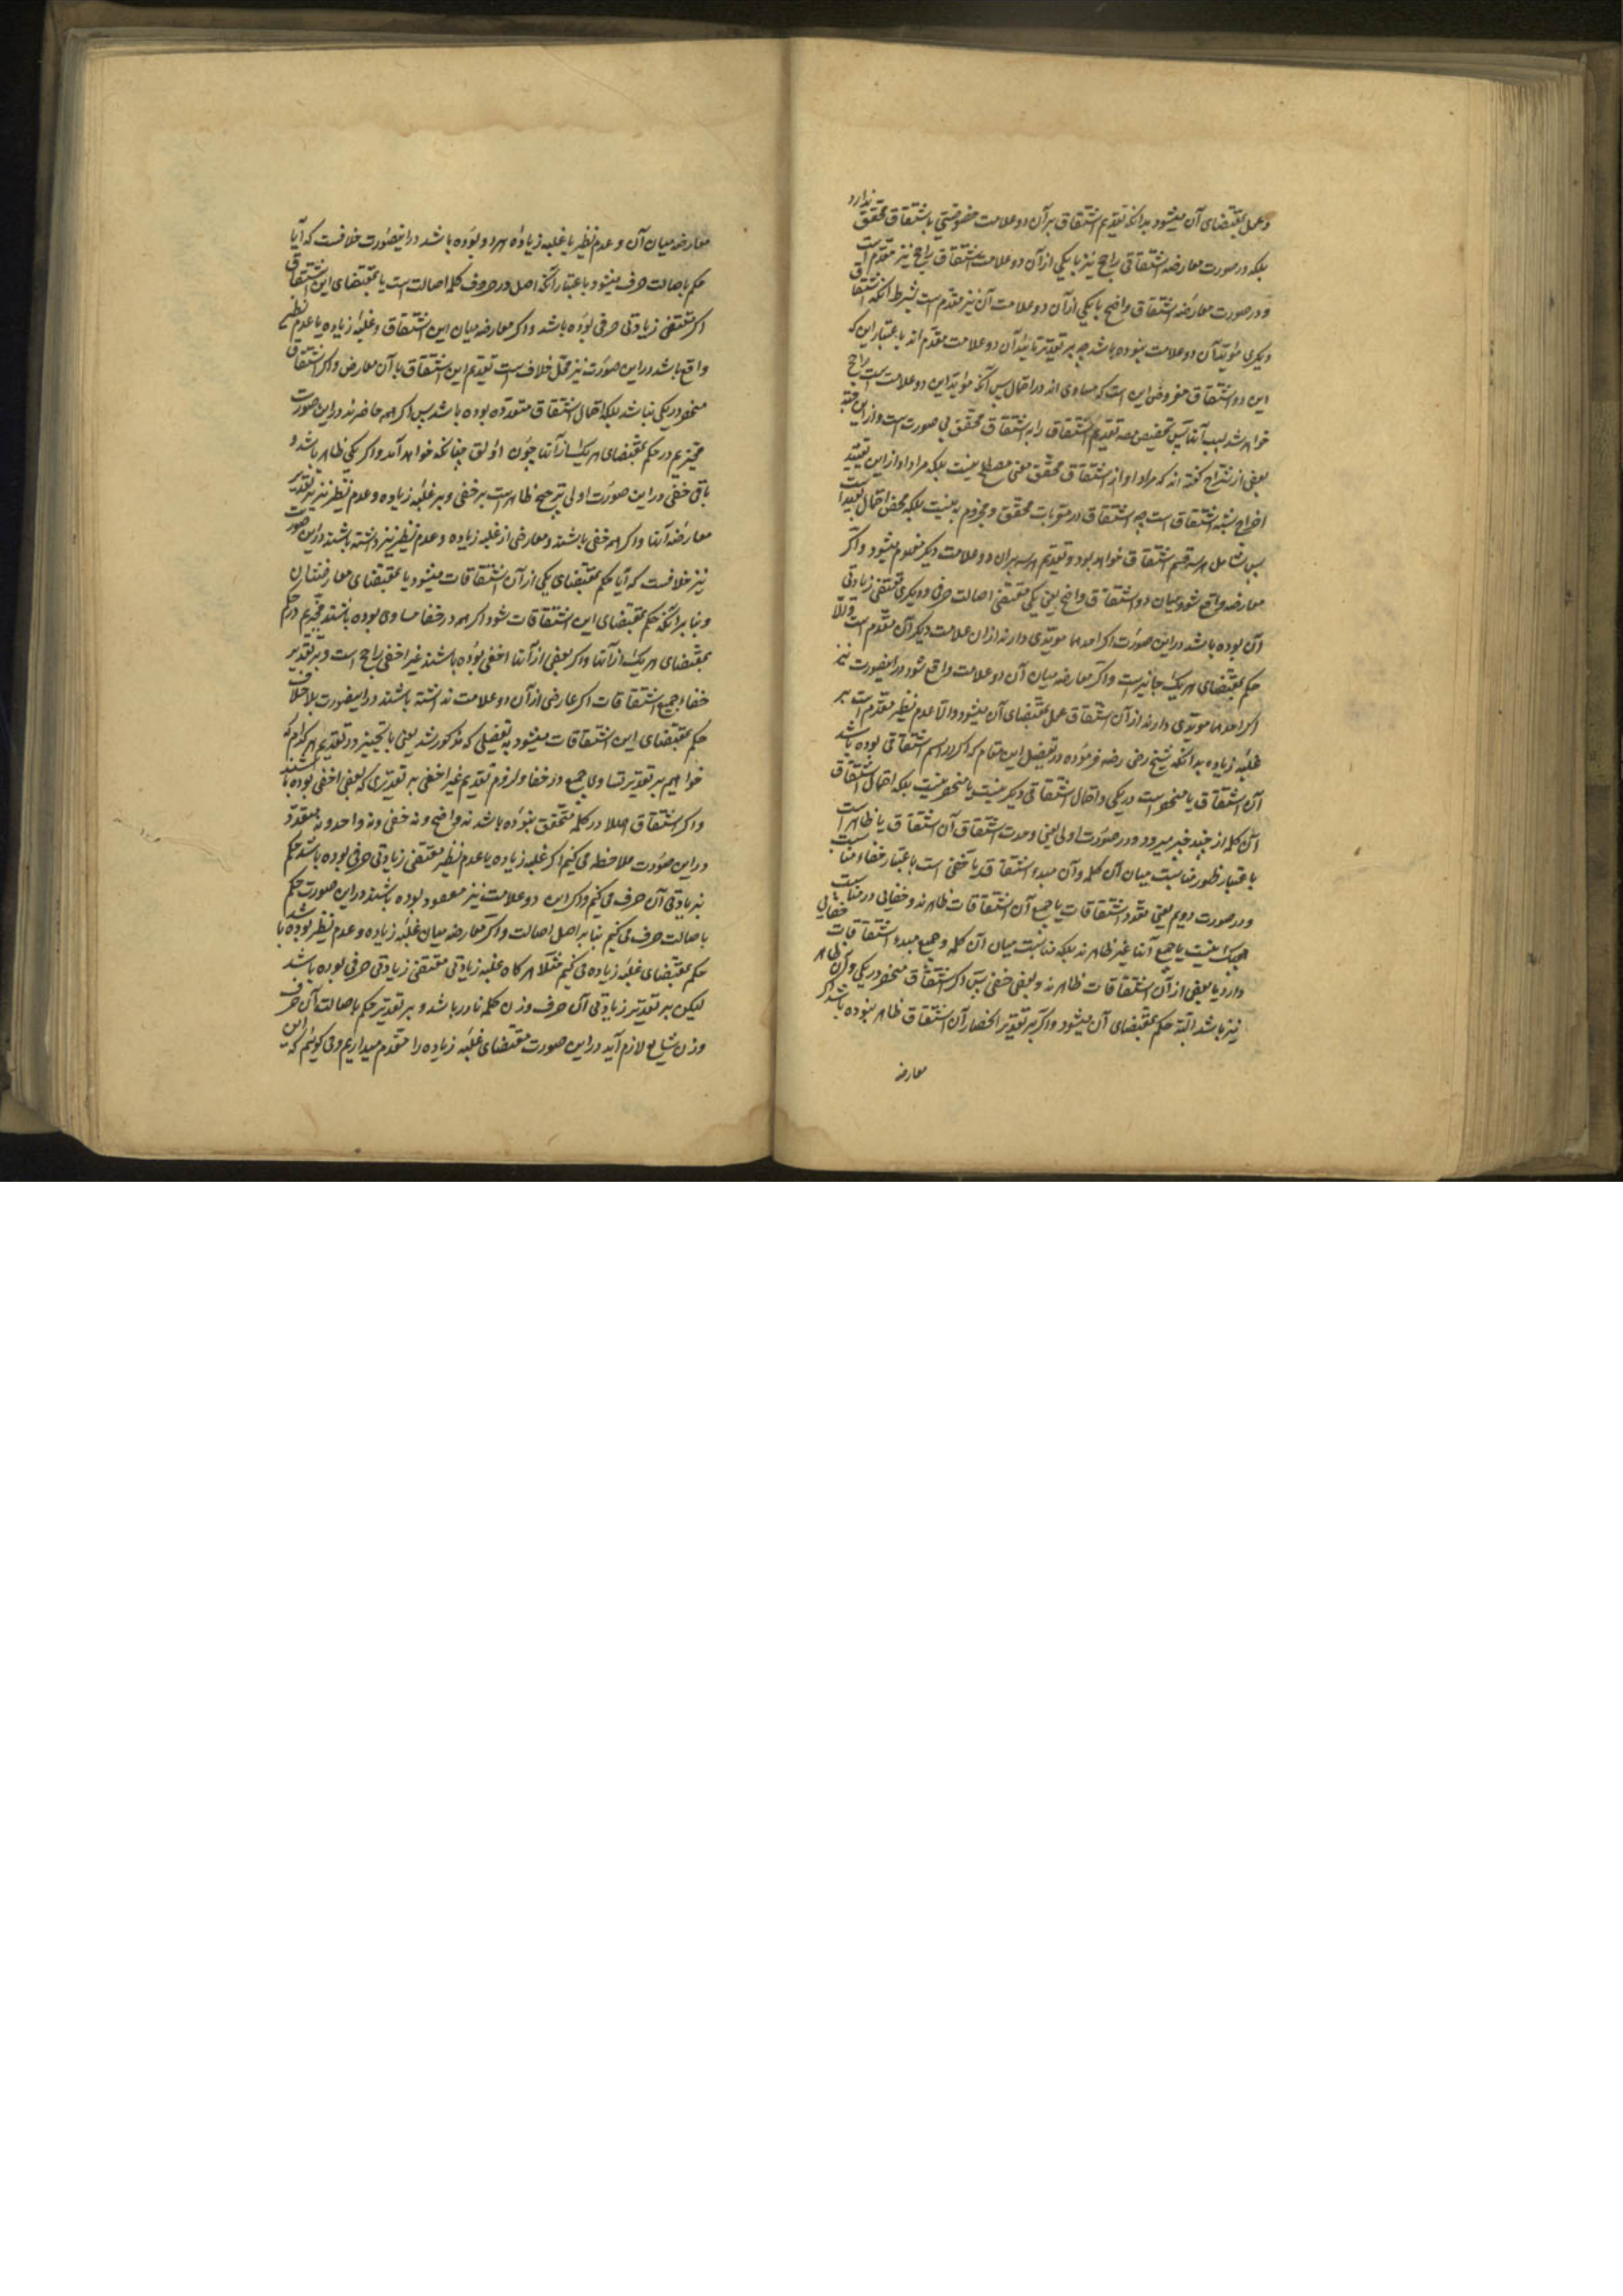 و عمل بمقتضای آن میشود بدانکه تقدیم اشتقاق بر آن دو علامت خصوصیتی باشتقاق محقق ندارد
بلکه در صورت معارضه اشتقاقی راجح نیز با یکی از آن دو علامت اشتقاق راجح نیز مقدم است
و در صورت معارضه اشتقاق واضح با یکی از آن دو علامت آن نیز مقدم است بشرط آنکه اشتقاق
دیگری مؤید آن دو علامت نبوده باشد چه بر تقدیر تایید آن دو علامت مقدم اند باعتبار این که
این دو اشتقاق مفروض این است که مساوی اند در احتمال پس آنکه مؤید این دو علامت است راجح
خواهد شد بسبب آنها پس تخصیص مصه تقدیم اشتقاق را به اشتقاق محقق بی صورت است و از این جهته
بعضی از شراح گفته اند که مراد او از اشتقاق محقق معنی مصطلح نیست بلکه مراد او از این تقیید
اخراج شبه اشتقاق است چه اشتقاق در متوبات محقق و مجزوم به نیست بلکه محض احتمال بعید است
پس شامل هر سه قسم اشتقاق خواهد بود و تقدیم هر سه بران دو علامت دیگر معلوم میشود و اگر
معارضه واقع شود میان دو اشتقاق واضح یعنی یکی مقتضی اصالت حرفی و دیگری مقتضی زیادتی
آن بوده باشد در این صورت اگر احدهما مویدی دارند از ان علامت دیگر آن مقدم است والا
حکم بمقتضای هر یک جایز است و اگر معارضه میان آن دو علامت واقع شود در اینصورت نیز
اگر احدهما مویدی دارند از آن اشتقاق عمل بمقتضای آن میشود والا عدم نظیر مقدم است بر
غلبه زیاده بدانکه شیخ رضی رضه فرموده در تفصیل این مقام که اگر در اسم اشتقاقی بوده باشد
آن اشتقاق یا منحصر است در یکی و احتمال اشتقاقی دیگر نیست و یا منحصر نیست بلکه احتمال اشتقاق
آن کلمه از چند چیز میرود و در صورت اولی یعنی وحدت اشتقاق آن اشتقاق یا ظاهر است
باعتبار ظهور مناسبت میان آن کلمه و آن مبدء اشتقاق و یا خفی است باعتبار خفاء مناسبت
و در صورت دویم یعنی تعدد اشتقاقات یا جمیع آن اشتقاقات ظاهرند و خفایی در مناسبت
هیچیک نیست یا جمیع آنها غیر ظاهرند بلکه مناسبت میان آن کلمه و جمیع مبدء اشتقاقات خفایی
دارد یا بعضی از آن اشتقاقات ظاهرند و بعضی خفی پس اگر اشتقاق منحصر در یکی و آن ظاهر
نیز باشد البته حکم بمقتضای آن میشود و اگر بر تقدیر انحصار آن اشتقاق ظاهر نبوده باشد اگر
معارضه
معارضه میان آن و عدم نظیر یا غلبه زیاده هر دو بوده باشد در اینصورت خلافست که آیا
حکم باصالت حرف میشود باعتبار آنکه اصل در حروف کلمه اصالت است یا بمقتضای این اشتقاق
اگر مقتضی زیادتی حرفی بوده باشد و اگر معارضه میان این اشتقاق و غلبه زیاده یا عدم نظیر
واقع باشد در این صورت نیز محل خلاف است تقدیم این اشتقاق با آن معارض و اگر اشتقاق
منحصر در یکی نباشد بلکه احتمال اشتقاق متعدده بوده باشد پس اگر همه ظاهرند در این صورت
مخیریم در حکم بمقتضای هر یک از آنها چون اولق چنانکه خواهد آمد و اگر یکی ظاهر باشد و
باقی خفی در این صورت اولی ترجیح ظاهر است بر خفی و بر غلبه زیاده و عدم نظیر نیز بر تقدیر
معارضه آنها و اگر همه خفی باشند و معارضی از غلبه زیاده و عدم نظیر نیز داشته باشند در این صورت
نیز خلافست که آیا حکم بمقتضای یکی از آن اشتقاقات میشود یا بمقتضای معارضشان
و بنابر آنکه حکم بمقتضای این اشتقاقات شود اگر همه در خفا مساوی بوده باشند مخیریم در حکم
بمقتضای هر یک از آنها و اگر بعضی از آنها اخفی بوده باشند غیر اخفی راجح است و بر تقدیر
خفاء جمیع اشتقاقات اگر عارضی از آن دو علامت نداشته باشند در اینصورت بلا خلاف
حکم بمقتضای این اشتقاقات میشود بتفصیلی که مذکور شد یعنی بالتخییر در تقدیم هر کدام که
خواهیم بر تقدیر تساوی جمیع در خفا و لزوم تقدیم غیر اخفی بر تقدیری که بعضی اخفی بوده باشند
و اگر اشتقاق اصلا در کلمه متحقق نبوده باشد نه واضح و نه خفی و نه واحد و نه متعدد
در این صورت ملاحظه می کنیم اگر غلبه زیاده یا عدم نظیر مقتضی زیادتی حرفی بوده باشد حکم
بزیادتی آن حرف می کنیم و اگر این دو علامت نیز مفقود بوده باشند در این صورت حکم
باصالت حرف می کنیم بنا بر اصل اصالت و اگر معارضه میان غلبه زیاده و عدم نظیر بوده باشد
حکم بمقتضای غلبه زیاده می کنیم مثلا هر گاه غلبه زیادتی مقتضی زیادتی حرفی بوده باشد
لیکن بر تقدیر زیادتی آن حرف وزن کلمه نادر باشد و بر تقدیر حکم باصالت آن حرف
وزن شایع لازم آید در این صورت مقتضای غلبه زیاده را مقدم میداریم و می گوئیم که این